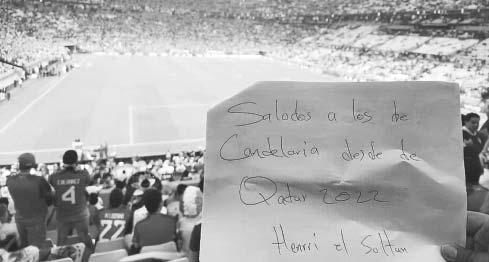 Salodos a los de
Candelaria desde de
Qatar 2022
Henrri el Soltan
4
22